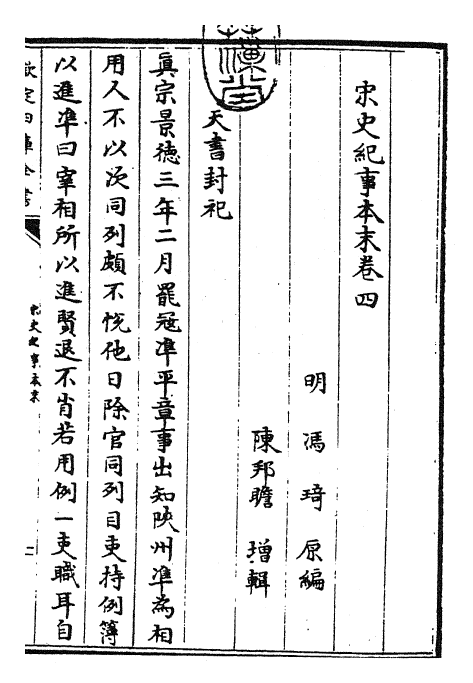 宋史紀事本末卷四
明 馮琦 原編
陳邦瞻 增輯
天書封祀
真宗景德三年二月罷寇準平章事出知陜州準為相
用人不以次同列頗不悅他日除官同列目吏持例簿
以進準曰宰相所以進賢退不肖若用例一吏職耳自
欽定四庫全書
宋史紀事本末